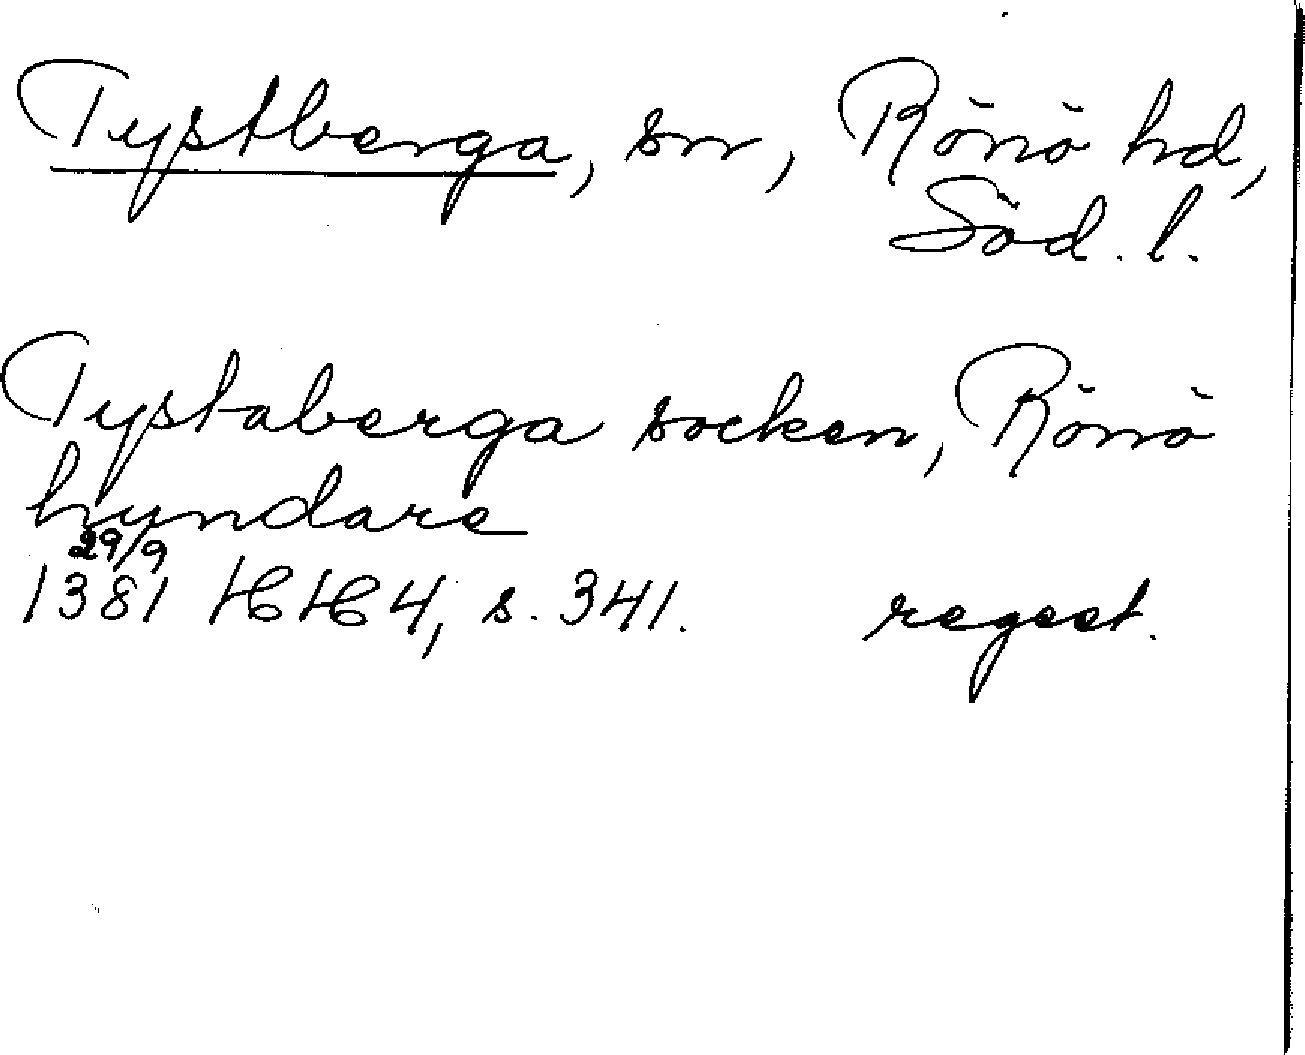 Tystberga, sn, Rönö hd,
Söd. l.
Tystaberga socken, Rönö
hundare
29/9
1381 HH 4, s. 341. regest.